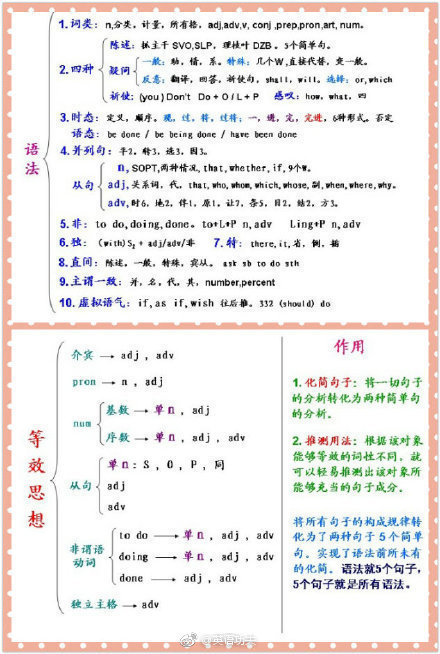 语法
1.词类: n,分类。计量,所有格, adj,adv,v, conj ,prep,pron,art, num。
陈述: 抓主干 SVO,SLP, 理枝叶 DZB。5个简单句。
2.四种
疑问
一般: 助,情,系。特殊:几个W,直接代替,变一般。
反意: 翻译,回答,祈使句, shall, will。选择: or,which
祈使: (you) Don't Do + O / L + P 感叹: how, what, 四
3.时态: 定义, 顺序。现,过,将,过将; 一,进,完,完进, 6种形式。否定
语态: be done / be being done / have been done
4.并列句: 平2。转3,选3,因3。
从句
n, SOPT,两种情况, that, whether, if, 9个W。
adj,关系词,代, that, who, whom, which, whose, 副, when, where, why。
adv,时6,地2,伴1,原1,让7,条5,目2,结2,方3。
5.非: to do,doing,done。to+L+P n,adv Ling+P n,adv
6.独: (with)S₂ + adj/adv/非 7.特: there,it,省,倒,插
8.直间: 陈述,一般,特殊,宾从。 ask sb to do sth
9.主谓一致: 并,名,代,其, number,percent
10.虚拟语气: if,as if,wish 往后推。332 (should) do
等效思想
介宾 → adj , adv
pron → n , adj
num
基数 → 单n , adj
序数 → 单n , adj , adv
从句
单n : S , O , P , 同
adj
adv
非谓语动词
to do → 单n , adj , adv
doing → 单n , adj , adv
done → adj , adv
独立主格 → adv
作用
1. 化简句子: 将一切句子
的分析转化为两种简单句
的分析。
2. 推测用法: 根据该对象
能够等效的词性不同, 就
可以轻易推测出该对象所
能够充当的句子成分。
将所有句子的构成规律转
化为了两种句子 5 个简单
句。实现了语法前所未有
的化简。语法就5个句子,
5个句子就是所有语法。